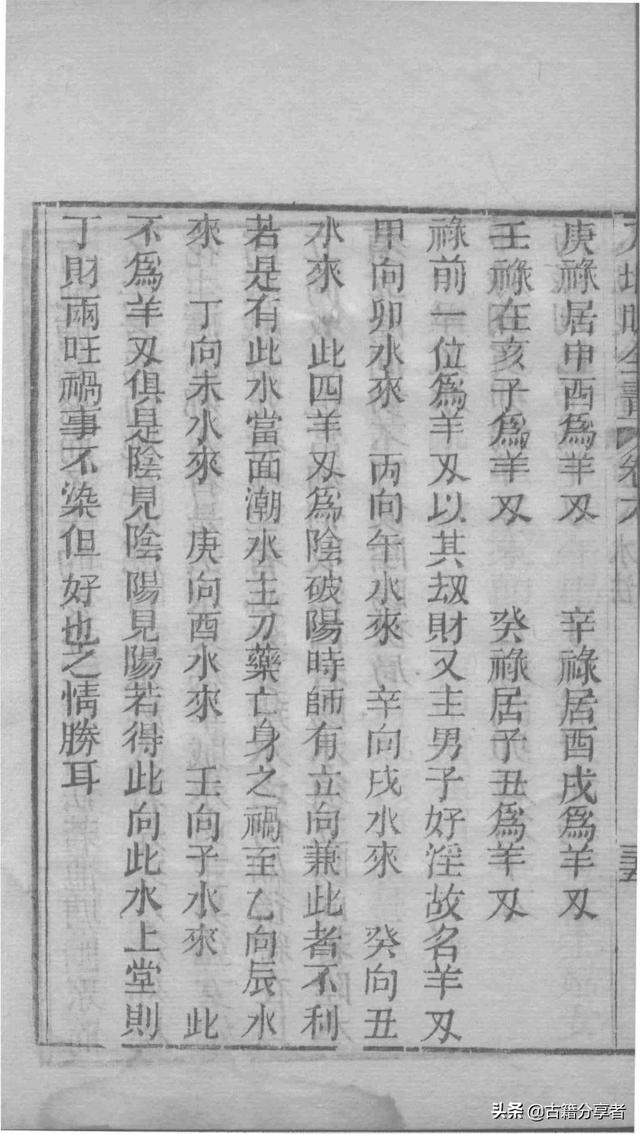 庚祿居申酉爲羊刄　辛祿居酉戌爲羊刄
壬祿在亥子爲羊刄　癸祿居子丑爲羊刄
祿前一位爲羊刄以其刼財又主男子好淫故名羊刄
甲向卯水來　丙向午水來　辛向戌水來　癸向丑
水來　此四羊刄爲陰破陽時師有立向兼此者不利
若是有此水當面潮水主刀藥亡身之禍至乙向辰水
來　丁向未水來　庚向酉水來　壬向子水來　此
不爲羊刄俱是陰見陰陽見陽若得此向此水上堂則
丁財兩旺禍事不染但好也之情勝耳
头条 @古籍分享者